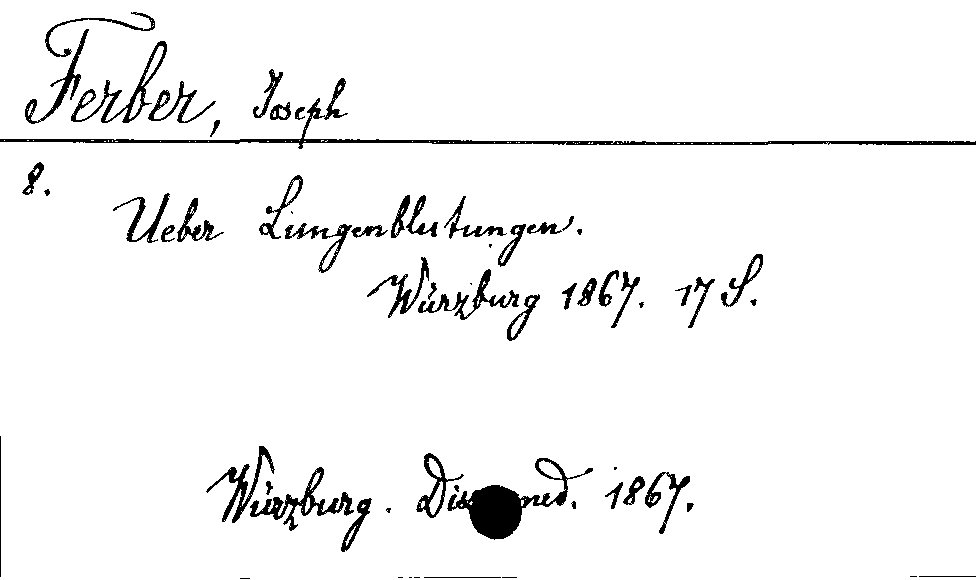 Ferber, Joseph
8.
Ueber Lungenblutungen.
Würzburg 1867. 17 S.
Würzburg. Diss. med. 1867.